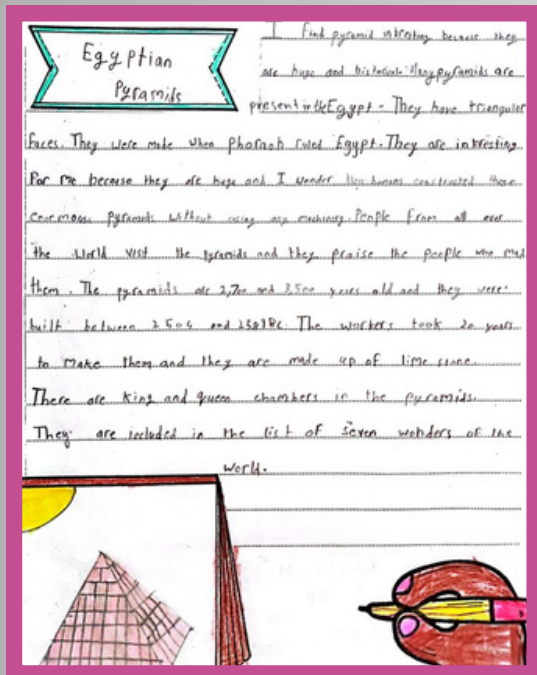 Egyptian
Pyramids
I find pyramid intresting because they
are huge and historical. Many pyramids are
present in the Egypt. They have trianguler
faces. They were made when pharaoh ruled Egypt. They are intresting
for me because they are huge and I wonder how humans constructed these
enormous pyramids without using any machinery. People from all over
the world visit the pyramids and they praise the people who mad
them. The pyramids are 2,700 and 3,500 years old and they were
built between 2504 and BC. The workers took 20 years
to make them and they are made up of lime stone.
There are king and queen chambers in the pyramids.
They are included in the list of seven wonders of the
world.